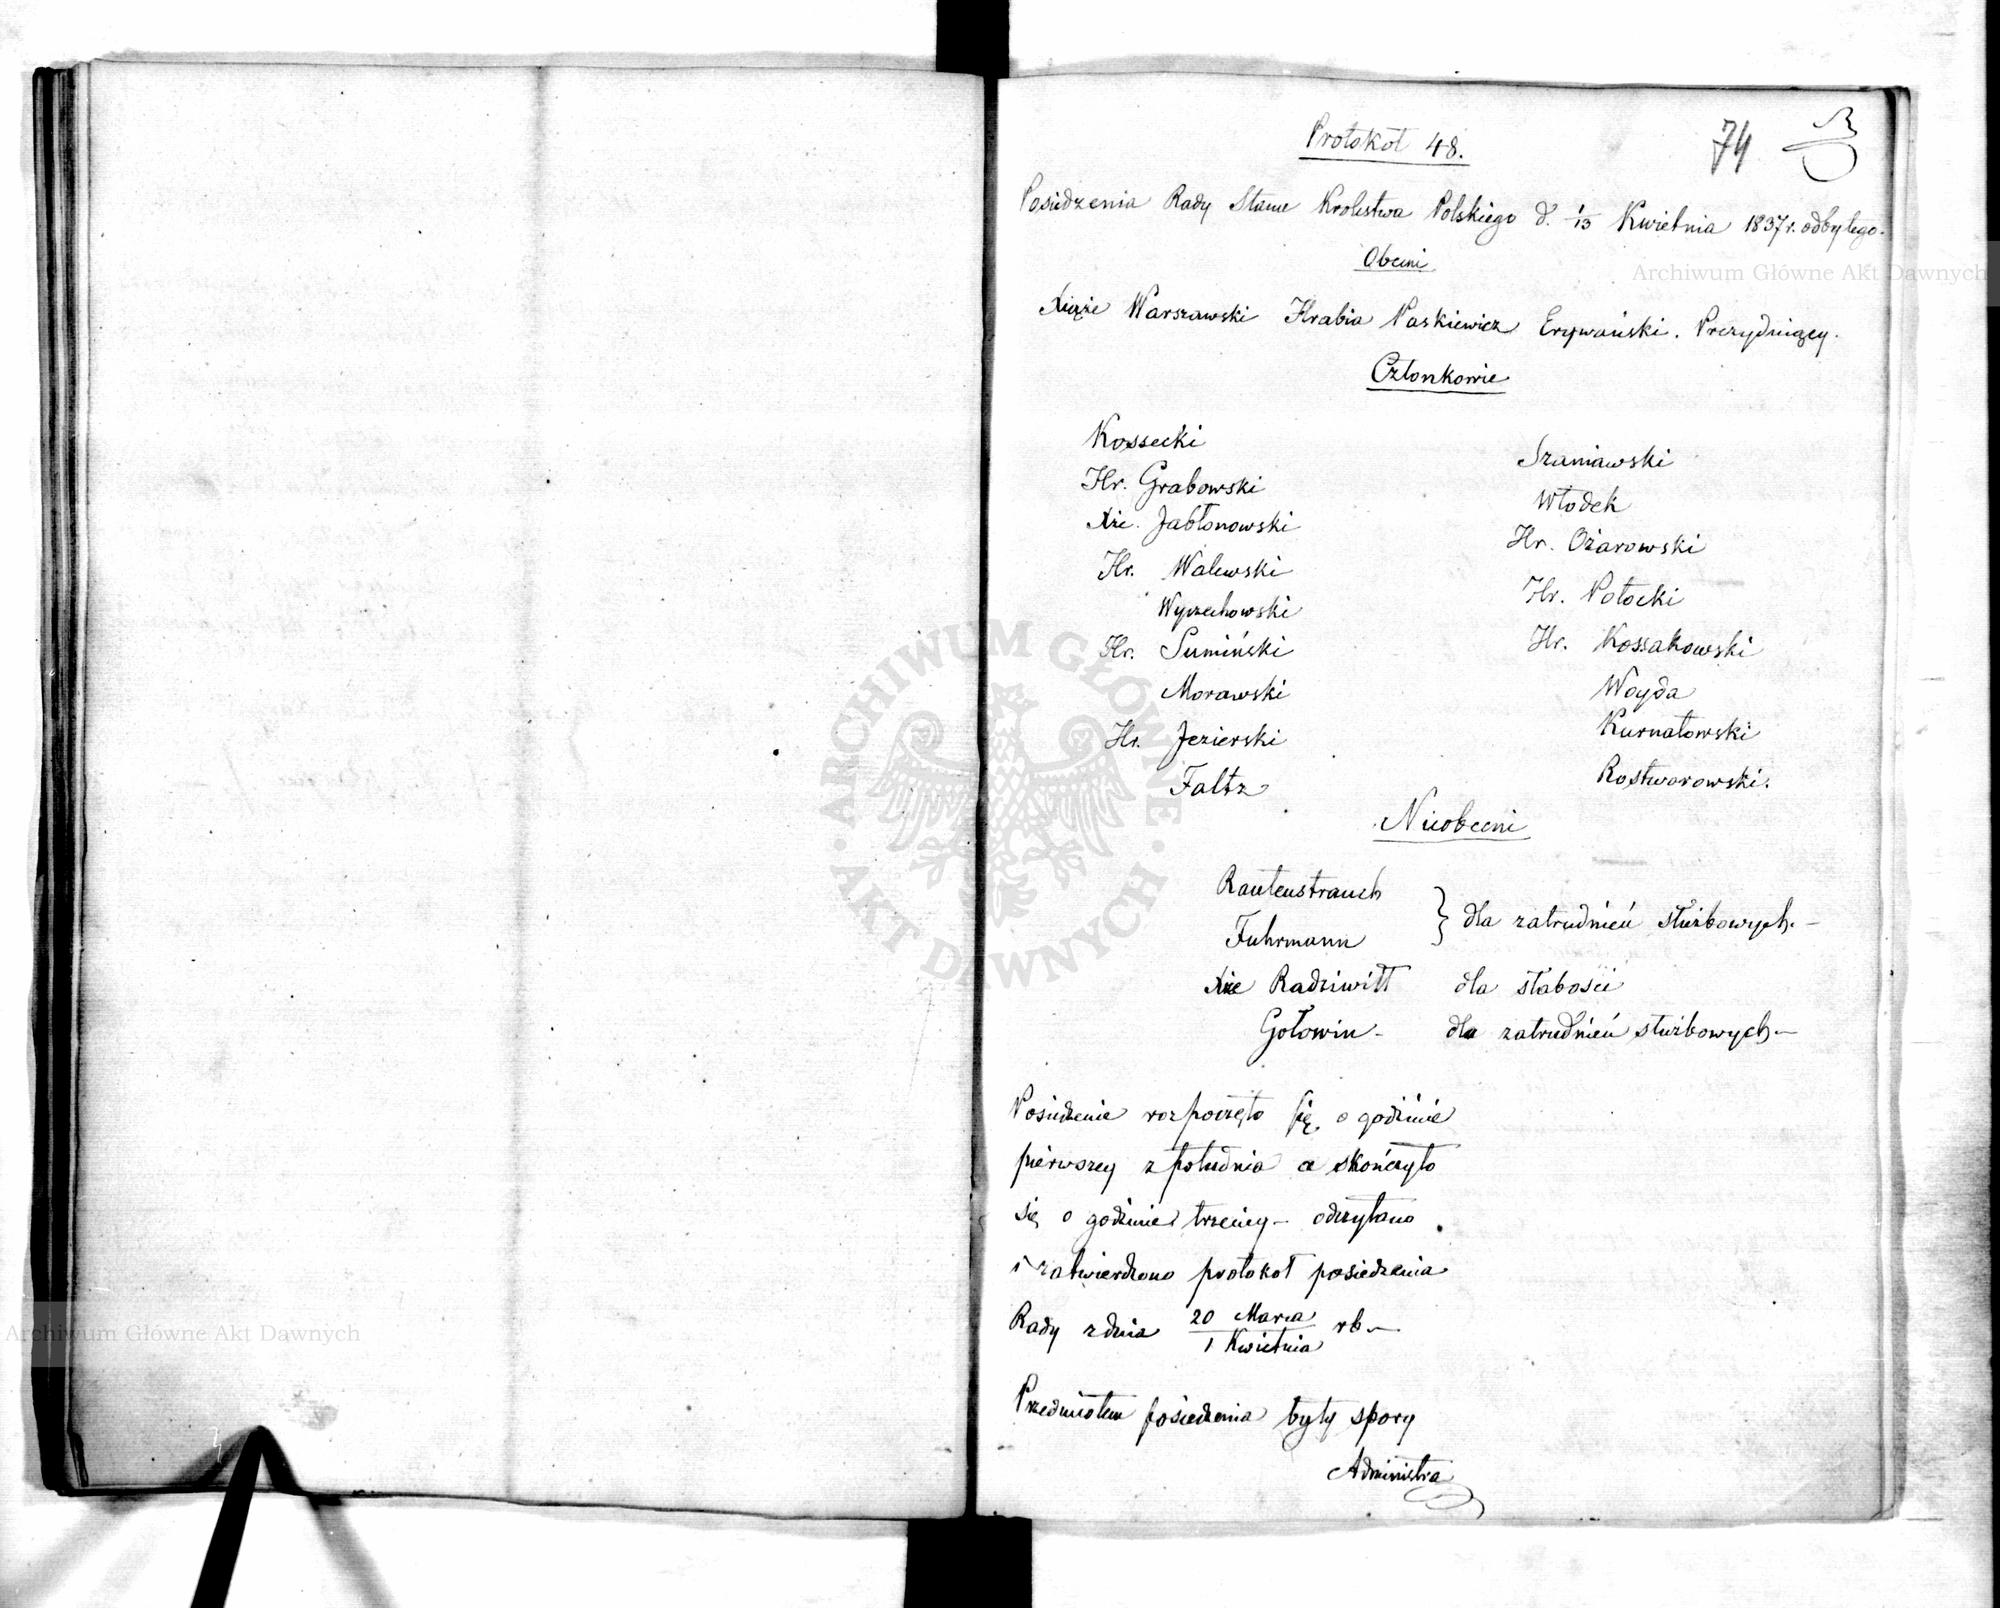 Protokół 48.
74
Posiedzenia Rady Stanu Królestwa Polskiego d. 1/13 Kwietnia 1837 r. odbytego.
Obecni
Xiąże Warszawski Hrabia Paskiewicz Erywański. Prezydujący.
Członkowie
Kossecki
Hr. Grabowski
Xże. Jabłonowski
Hr. Walewski
Wyczechowski
Hr. Sumiński
Morawski
Hr. Jezierski
Faltz
Szaniawski
Włodek
Hr. Ożarowski
Hr. Potocki
Hr. Kossakowski
Woyda
Kurnatowski
Rostworowski.
Nieobecni
Rautenstrauch
Fuhrmann } dla zatrudnień służbowych.—
Xże Radziwiłł dla słabości
Gołowin - dla zatrudnień służbowych—
Posiedzenie rozpoczęto się o godzinie
pierwszey z południa a skończyło
się o godzinie trzeciey— odczytano
i zatwierdzono protokoł posiedzenia
Rady z dnia 20 Marca / 1 Kwietnia rb—
Przedmiotem posiedzenia były spory
Administra
Archiwum Główne Akt Dawnych
Archiwum Główne Akt Dawnych
ARCHIWUM GŁÓWNE · AKT DAWNYCH ·